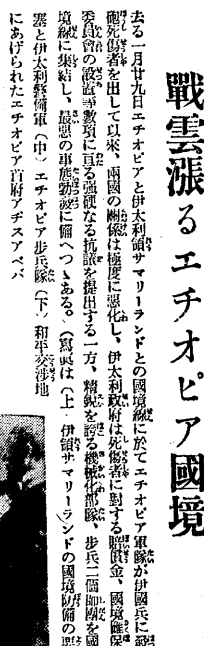 戰雲漲るエチオピア國境
去る一月廿九日エチオピアと伊太利領サマリーランドとの國境線に於てエチオピア軍隊が伊國兵に
砲死傷者を出して以來、兩國の關係は極度に惡化し、伊太利政府は死傷者に對する賠償金、國境確保
委員會の設置等數項に亘る强硬なる抗議を提出する一方、精銳を誇る機械化部隊、步兵二個師團を國
境線に集結し、最惡の事態勃發に備へつゝある。(寫眞は(上)伊領サマリーランドの國境防備の
塞と伊太利警備軍(中)エチオピア步兵隊(下)和平交涉地
にあげられたエチオピア首府アヂスアベバ